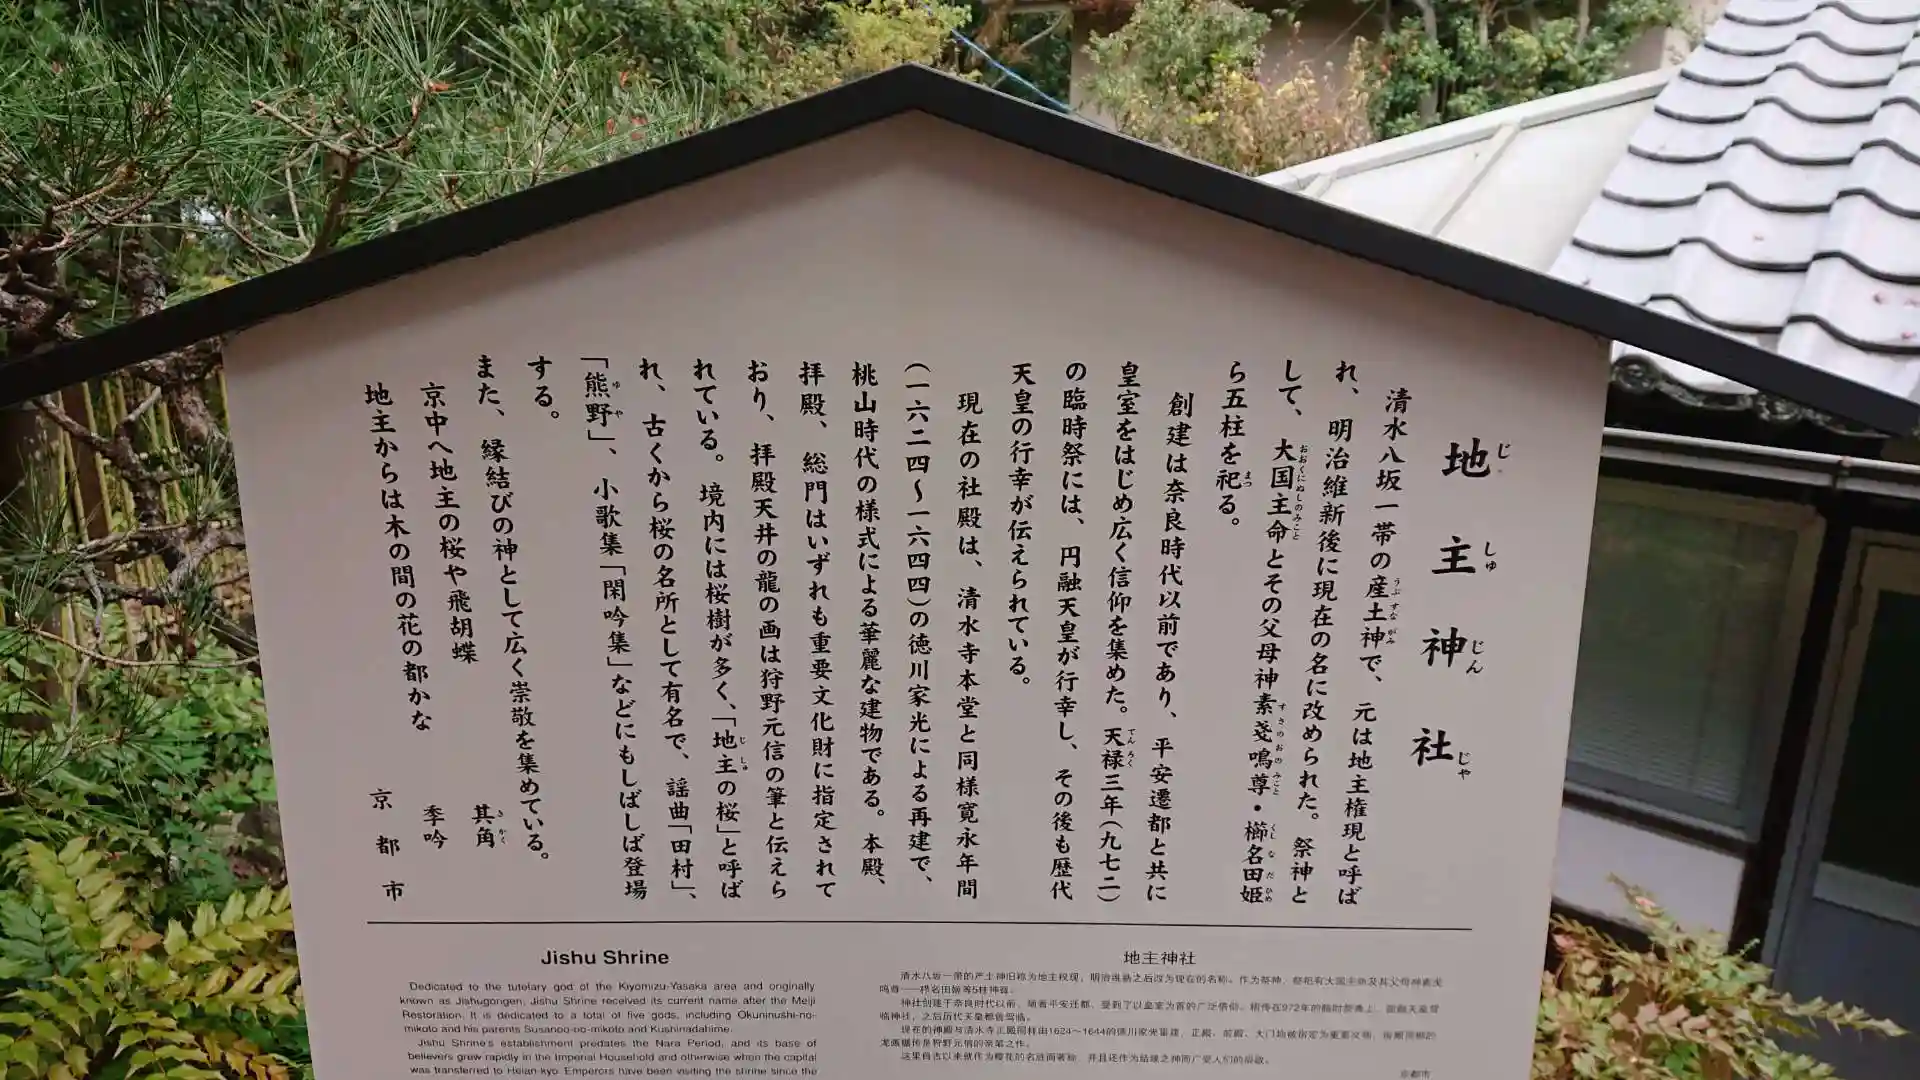 地主神社
じしゅじんじゃ
清水八坂一帯の産土神で、元は地主権現と呼ば
れ、明治維新後に現在の名に改められた。祭神と
して、大国主命とその父母神素戔嗚尊・櫛名田姫
ら五柱を祀る。
創建は奈良時代以前であり、平安遷都と共に
皇室をはじめ広く信仰を集めた。天禄三年(九七二)
の臨時祭には、円融天皇が行幸し、その後も歴代
天皇の行幸が伝えられている。
現在の社殿は、清水寺本堂と同様寛永年間
(一六二四～一六四四)の徳川家光による再建で、
桃山時代の様式による華麗な建物である。本殿、
拝殿、総門はいずれも重要文化財に指定されて
おり、拝殿天井の龍の画は狩野元信の筆と伝えら
れている。境内には桜樹が多く、「地主の桜」と呼ば
れ、古くから桜の名所として有名で、謡曲「田村」、
「熊野」、小歌集「閑吟集」などにもしばしば登場
する。
また、縁結びの神として広く崇敬を集めている。
京中へ地主の桜や飛胡蝶 其角
地主からは木の間の花の都かな 季吟
京都市
Jishu Shrine
Dedicated to the tutelary god of the Kiyomizu-Yasaka area and originally
known as Jishugongen, Jishu Shrine received its current name after the Meiji
Restoration. It is dedicated to a total of five gods, including Okuninushi-no-
mikoto and his parents Susanoo-no-mikoto and Kushinadahime.
Jishu Shrine's establishment predates the Nara Period, and its base of
believers grew rapidly in the Imperial Household and otherwise when the capital
was transferred to Heian-kyo. Emperors have been visiting the shrine since the
地主神社
清水八坂一带的产土神旧称为地主权现，明治维新之后改为现在的名称。作为祭神，祭祀有大国主命及其父母神素戔
鸣尊——栉名田姬等5柱神器。
神社创建于奈良时代以前，随着平安迁都，受到了以皇室为首的广泛信仰。相传在972年的临时祭典上，圆融天皇曾
临神社，之后历代天皇都曾驾临。
现在的神殿与清水寺正殿同样由1624～1644的德川家光重建，正殿、前殿、大门均被指定为重要文物，
龙画据传是狩野元信的亲笔之作。
这里自古以来就作为樱花的名胜而著称，并且还作为结缘之神而广受人们的崇敬。
京都市